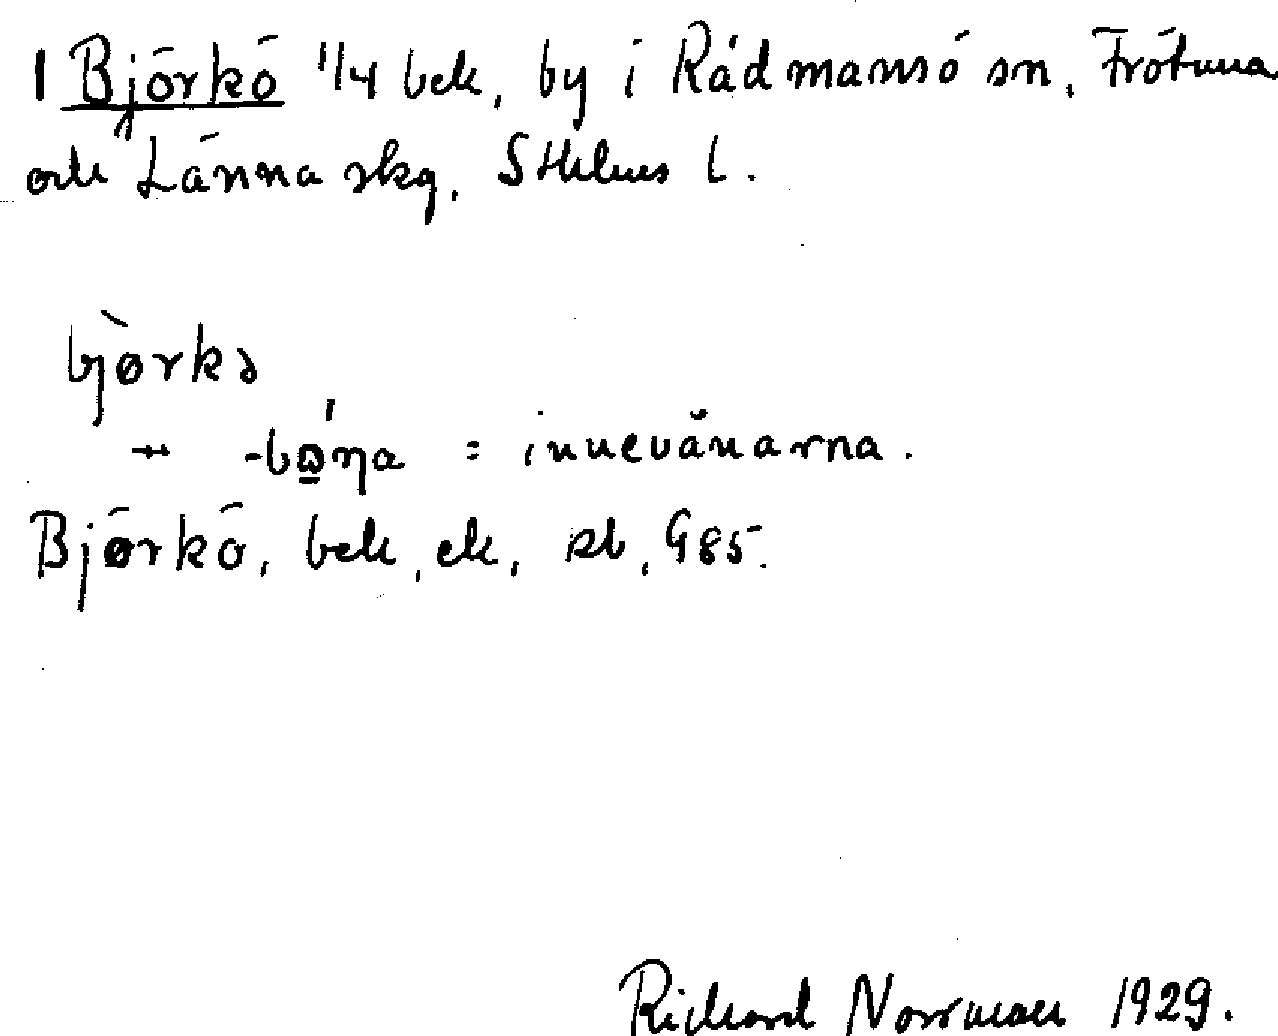 1 Björkö 1/4 bek, by i Rådmansö sn, Frötuna
och Länna skg, Sthlms l.
bjòrkə
" -bώ̲ṇa = innevånarna.
Björkö, bek, ek, sb, G85.
Richard Norrman 1929.